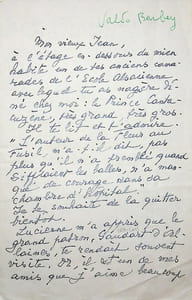 Valdo Barbey
Mon vieux Jean,
à l'étage au-dessous du mien
habite un de tes anciens cama-
rades de l'Ecole Alsacienne
avec lequel tu as
né chez moi : le Prince Canta-
cuzène, très grand, très gros.
Il te lit et t'admire.
"L'auteur de la fleur au
fusil" a-t-il dit, "pas
plus qu'il n'a tremblé quand
sifflaient les balles, n'a man-
qué de courage dans sa
chambre d'hôpital."
Je te souhaite de la quitter
bientôt.
Lucienne m'a appris que le
grand patron,
te rendait souvent
visite. Or, il est un de mes
amis que j'aime beaucoup